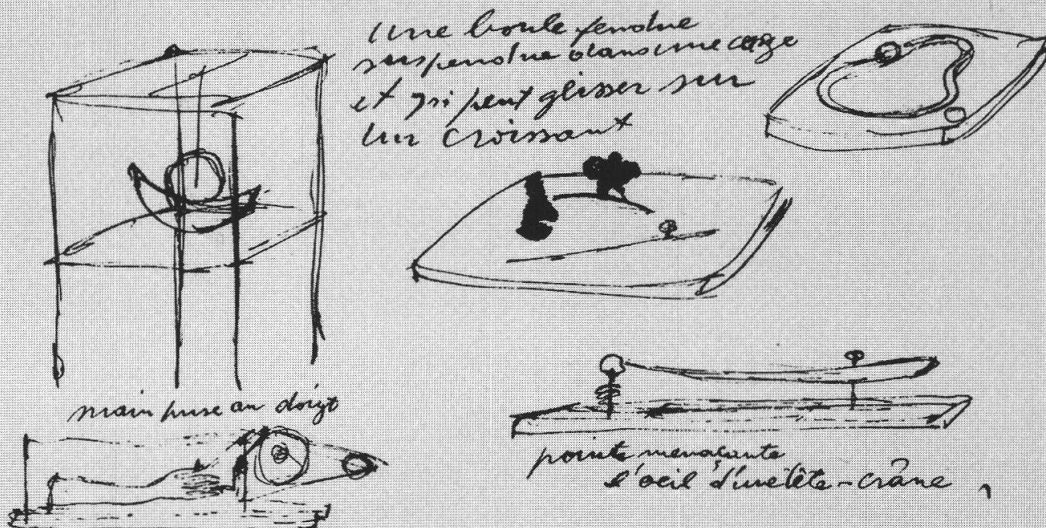 Une boule fendue
suspendue dans une cage
et qui peut glisser sur
un croissant
main prise au doigt
pointe menaçante
l'œil d'une tête-crâne